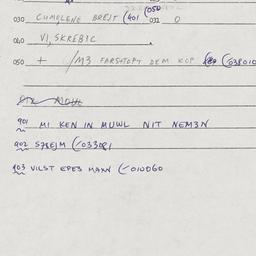 030 CUMILENE BREJT (401 (050 032 0
040 VI, SKREBIC
050 + /M3 FARSHTOPT DEM KOP (038010
901 MI KEN IN MUWL NIT NEM3N
902 (033021
903 VILST EPES MAXN (010060